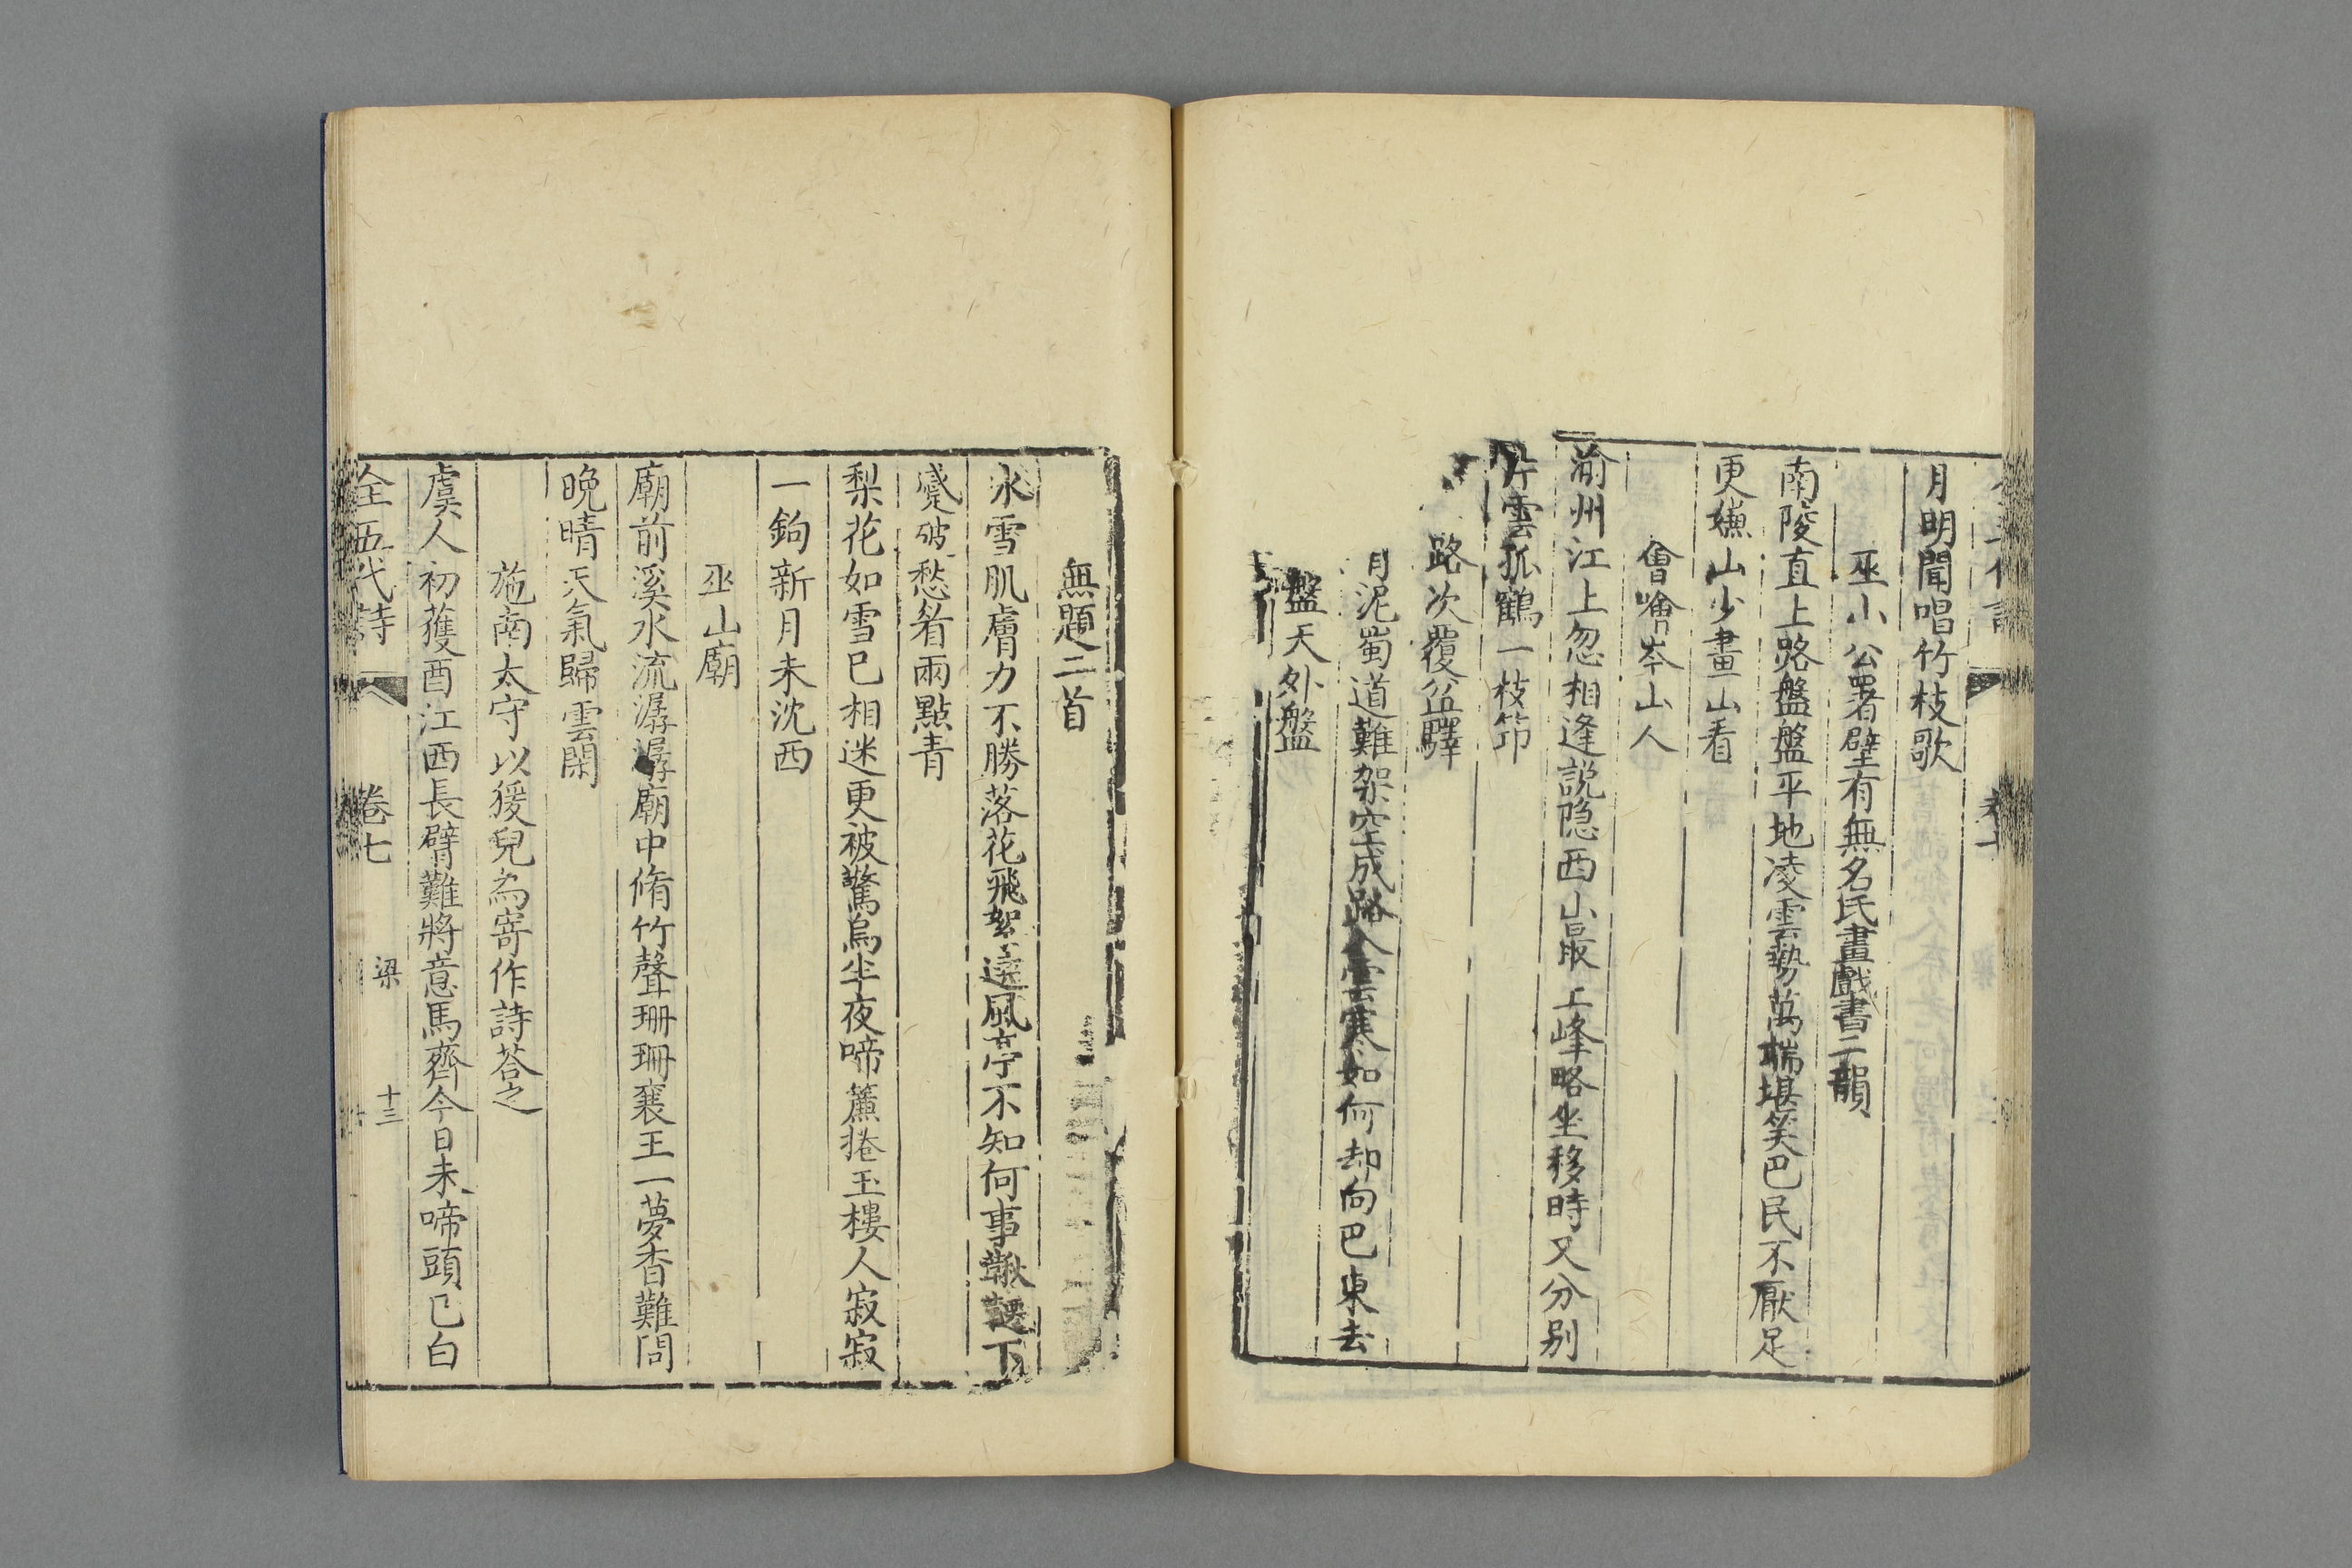 月明聞唱竹枝歌
巫小公署壁有無名氏畫戲書二韻
南陵直上路盤盤平地凌雲勢萬端堪笑巴民不厭足
更嫌山少畫山看
會噲岑山人
渝州江上忽相逢説隠西山最上峰略坐移時又分别
片雲孤鶴一枝笻
路次覆盆驛
泥蜀道難架空成路入雲寒如何却向巴東去
盤天外盤
無題二首
氷雪肌膚力不勝落花飛絮遶風亭不知何事鞦韆下
蹙破愁眉兩點青
梨花如雪已相迷更被驚烏半夜啼簾捲玉樓人寂寂
一鉤新月未沈西
巫山廟
廟前溪水流潺潺廟中脩竹聲珊珊襄王一夢杳難問
晩晴天氣歸雲閑
施南太守以猨兒為寄作詩荅之
虞人初獲酉江西長臂難將意馬齊今日未啼頭已白
全五代詩 卷七 梁 十三